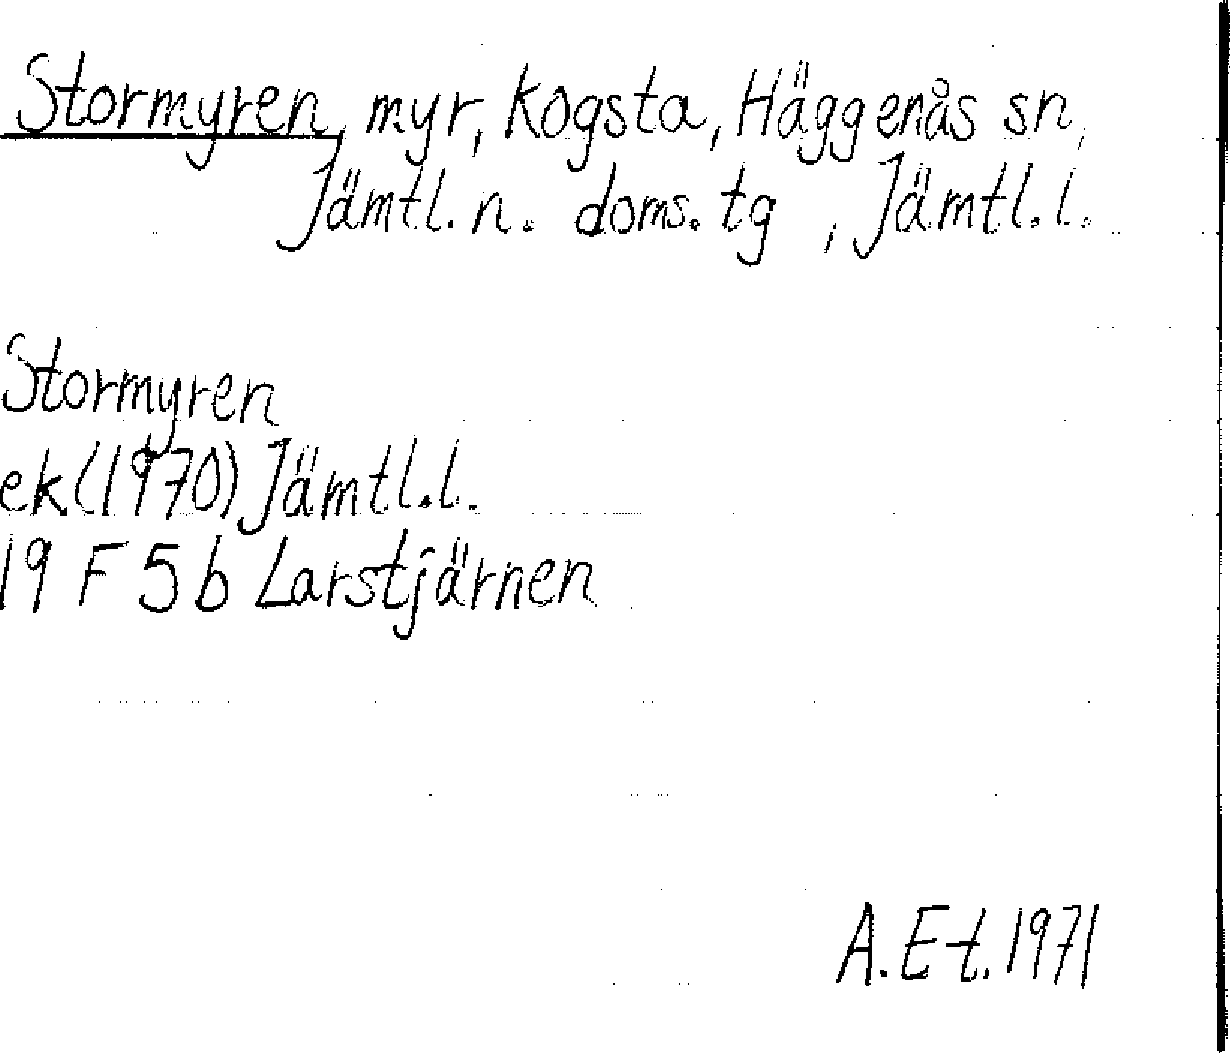 Stormyren, myr, Kogsta, Häggenås sn,
Jämtl. n. doms. tg, Jämtl. l.
Stormyren
ek (1970) Jämtl. l.
19 F 5 b Larstjärnen
A. E-t. 1971